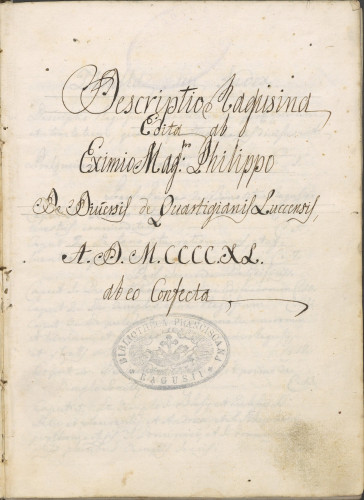 Descriptio Ragusina
Edita ab
Eximio Mag.ro Philippo
De Diversis de Quartigianis Luccensis,
A. D. M. CCCCXL.
ab eo Confecta
BIBLIOTHECA FRANCISCANA
RAGUSII